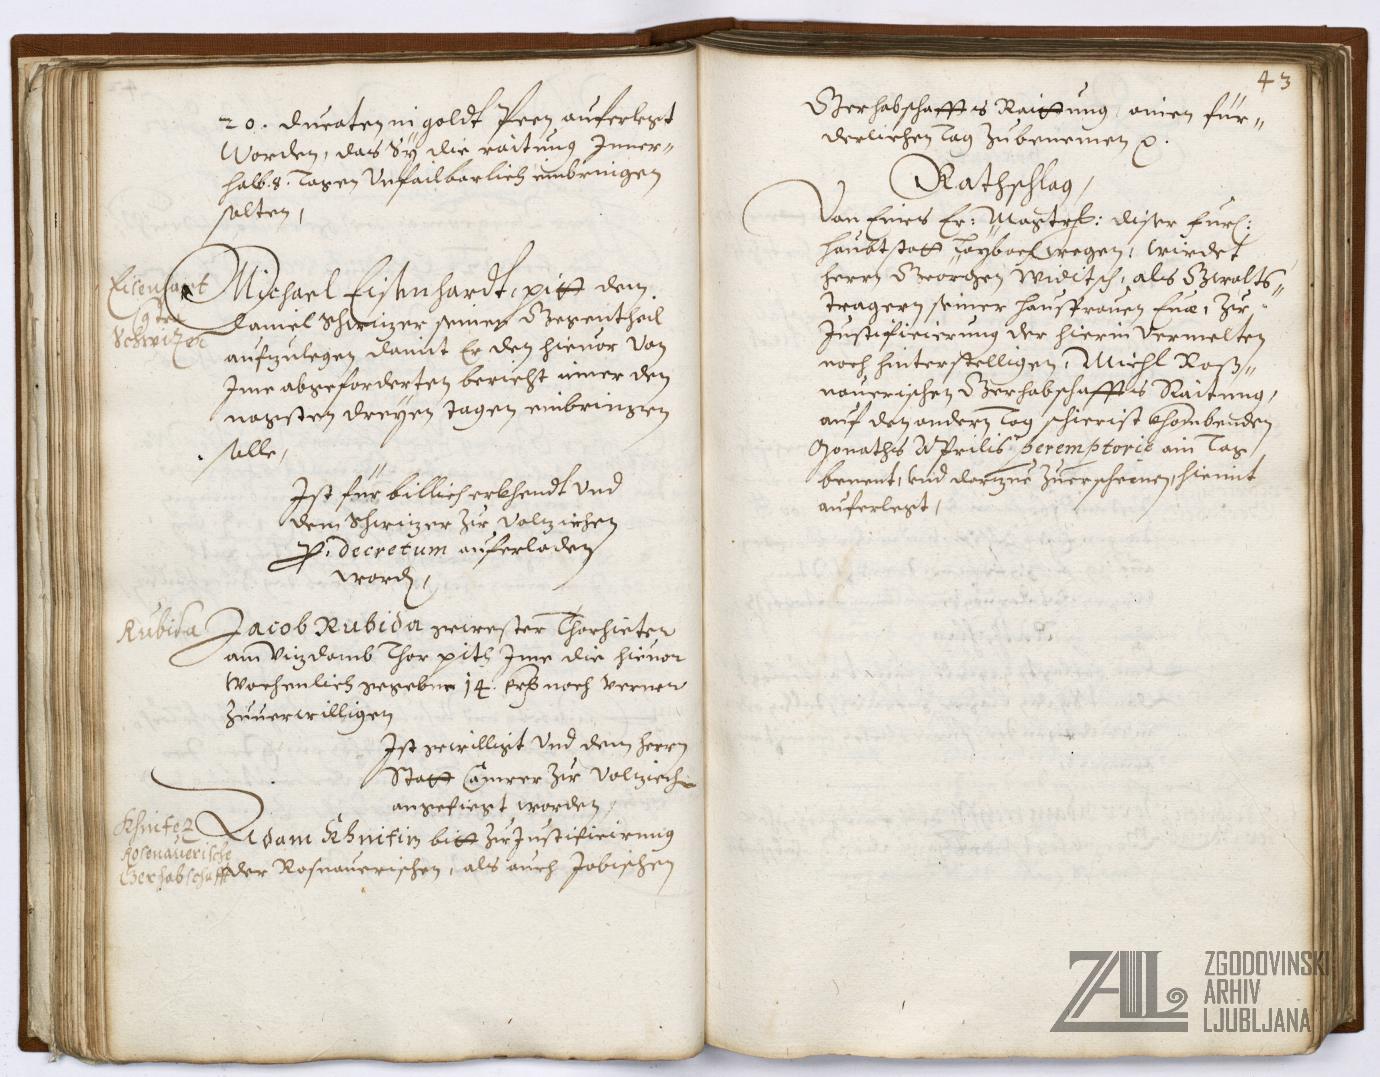 20. ducaten in goldt Peen auferlegt
Worden, das Sÿ die raitung Inner=
halb 8. Tagen Unfailbarlich einbringen
solten,
Eisenhart
Schwizer
Michael Eisenhardt, pitt dem
Daniel Schwizer seinen Gegentheil
aufzulegen, damit Er den hievor von
Ime abgeforderten bericht inner den
nagsten dreÿen tagen einbringen
solle,
Ist für billich erkhendt und
dem Schwizer zur volziehen
p. decretum auferladen
word,
Rubida
Jacob Rubida gewester Thorhieter
am Vizdomb Thor pith Ime die hievor
Wochenlich gegebne 14. noch verner
Zuverwilligen
Ist gewilligt und dem herrn
Statt Camrer zur volziech
angefiegt worden
Khnifez
Rosenauerische
Gerhabschafft
Adam Khnifiz bitt zur Justificirung
der Rosnauerischen, als auch Jobischen
43
Gerhabschaffts Raittung, ainen für=
derlichen Tag Zubenennen p.
Rathschlag,
Von Eines Er: Magtrs: diser Fürl:
haubtstatt Laybach wegen, wirdet
herrn Georgen Widitsch, als Gwalts=
tragern seiner hausfrauen Euae, zur
Justificierung der hierin vermelten
noch hinterstelligen, Michl Roß=
nauerischen Gerhabschaffts Raitung,
auf den andern Tag schierist khombenden
Monaths Aprilis peremptorie ain Tag
benent, und darzue Zuerscheinen, hiemit
auferlegt,
ZAL
ZGODOVINSKI
ARHIV
LJUBLJANA